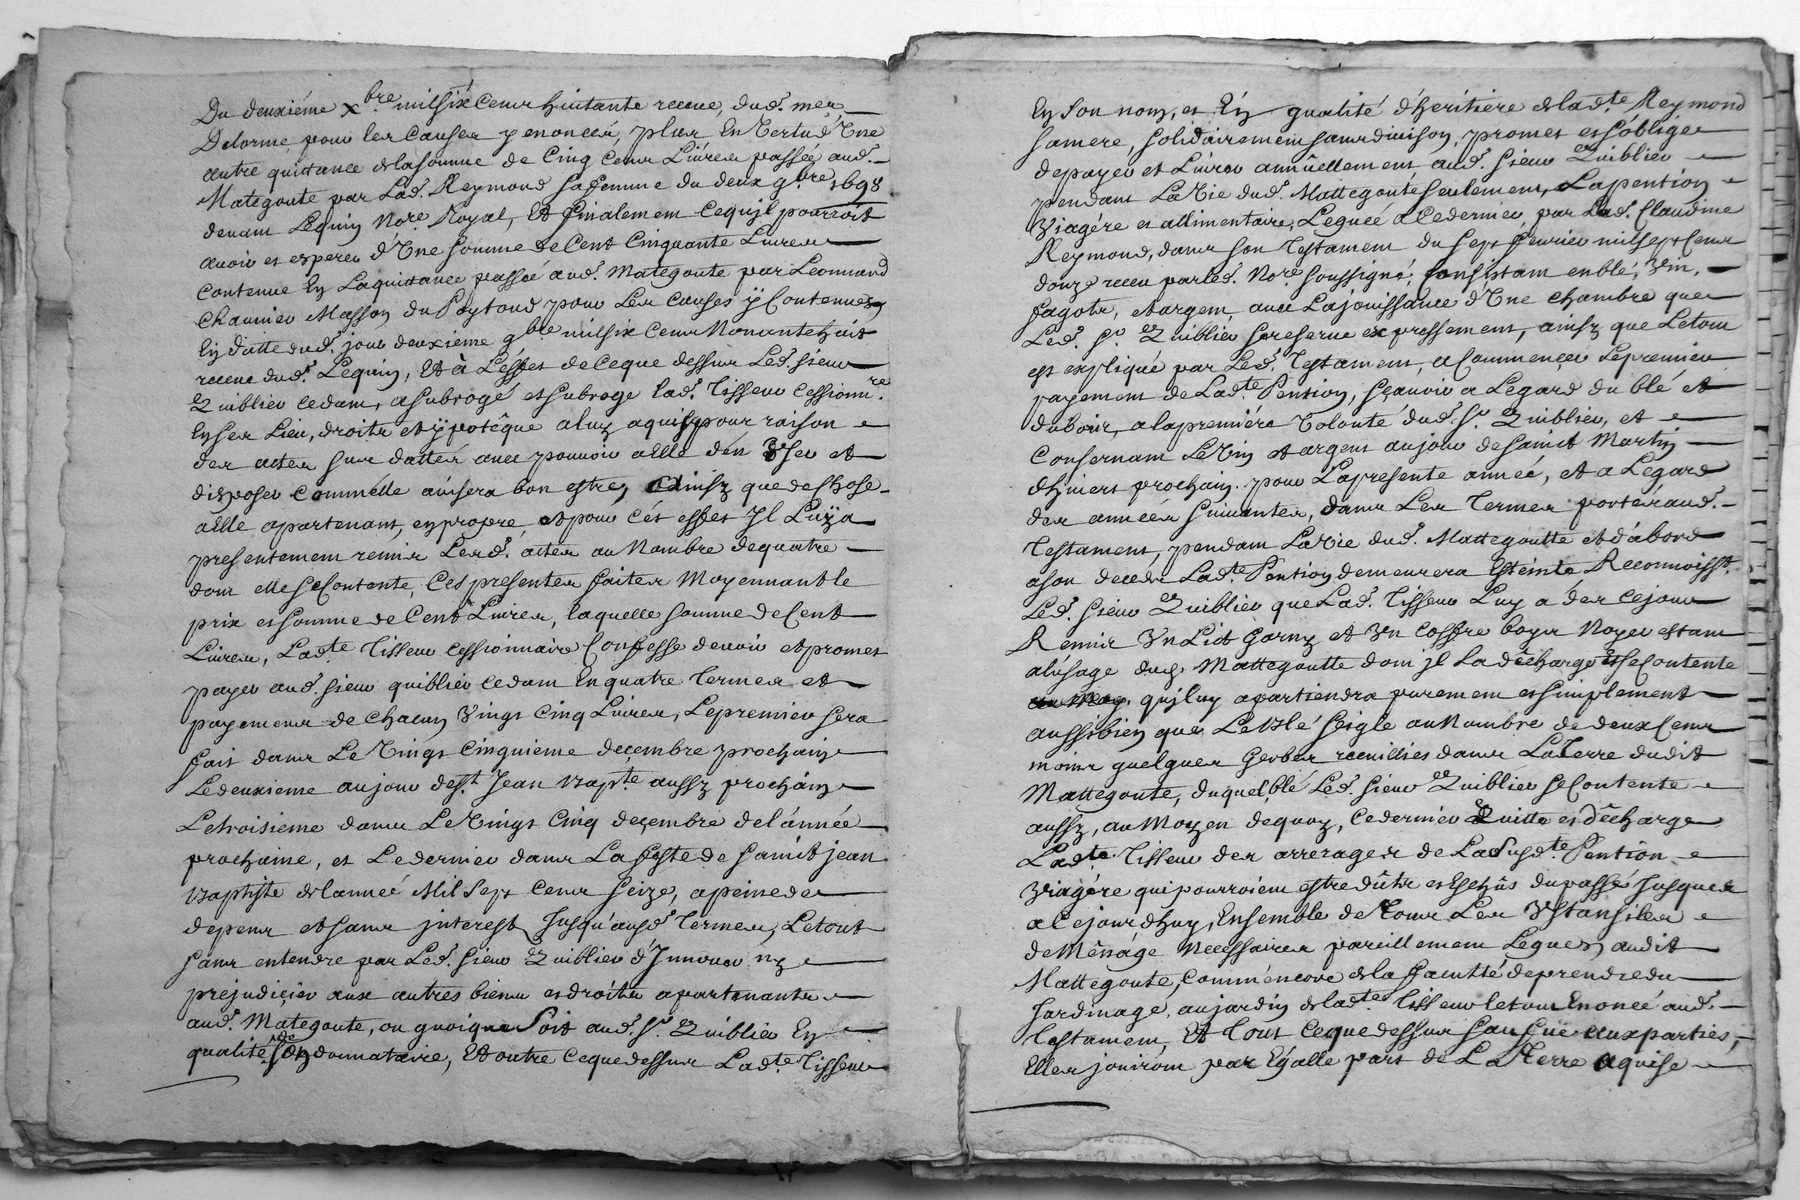 Du deuxiéme xbre milsix cens huitante receue, dud. mer
Delorme pour les causes y enoncéés, plus En Vertu d'Une
autre quittance de la somme de Cinq Cens Livres passée aud.
Mategoute par Lad. Reymond sa femme du deux 9.bre 1698
devant Lequin No.re Royal, Et finalement Cequ'jl pourroit
avoir et esperer d'Une somme de Cent Cinquante Livres
Contenue En Laquittance passée aud. Mategoute par Leonnard
Chaunier Masson du Poytoud pour Les Causes ÿ Contenues
En datte dud. jour deuxième 9bre milsix Cens Nonantehuit
receue dud. Lequin, Et à L'effet de Ceque dessus Led. sieur
Quiblier cedant, asubrogé et subroge lad. Tisseur Cessionn.re
En ses Lieu, droits et ÿpotêque a luy aquis pour raison
des actes sus dattés avec pouvoir aElle d'en User et
disposer Comme'lle avisera bon estre, Ainsy que de Chose
aElle apartenant, en propre, et pour Cés effets Jl Luÿ a
presentement remis Lesd. actes au Nombre de quatre
dont elle se Contente, Ces presentes faites Moyennant le
prix et somme de Cent Livres, laquelle somme de Cent
Livres, Ladte Tisseur Cessionnaire Confesse devoir et promet
payer aud. sieur quiblier Cedant En quatre Termes et
payemens de Chacun Vingt Cinq Livres, Le premier sera
fait dans Le Vingt Cinquieme decembre prochain
Le deuxieme au jour de St Jean Bapte aussy prochain
Le troisieme dans Le Vingt Cinq decembre de l'année
prochaine, et Le dernier dans La feste de Sainct jean
Baptiste de lannéé Mil Sept Cens Seize, apeine de
depens et sans jnterest Jusqu'ausd. Termes, Le tout
sans entendre par Led. sieur Quiblier d'Innover ny
préjudicier aux autres biens et droits apartenants
aud. Mategoute, ou quoique Soit aud. Sr Quiblier En
qualité de son donnataire, Et outre Ceque dessus Ladte Tisseur
En Son nom, et En qualité d'heritiere de ladte Reymond
sa mere, solidairement sans division, promet et s'oblige
de payer et Livrer annuellement aud. Sieur Quiblier
pendant La Vie dud. Mattegoute seulement, La pention
Viagére et allimentaire, Leguéé a Ce dernier par Lad. Claudine
Reymond, dans son Testament du Sept fevrier mil sept Cens
douze receu par led. Nore soussigné, Consistant en blé, Vin,
fagots, et argent, avec La jouissance d'Une Chambre que
Led. Sr Quiblier se reserve expressement, ainsy que Le tout
est expliqué par Led. Testament, a Commencer Le premier
payement de Ladte Pention, sçavoir a L'egard du blé et
du bois, a la premiére Volonté dud. Sr Quiblier, et
Consernant Le Vin et argent au jour de Sainct Martin
d'hivert prochain pour La presente année, et a L'egard
des années suivantes, dans Les Termes portés aud.
Testament, pendant La Vie dud. Mattegoutte et d'abord
a son decéds Ladte Pention demeurera Esteinte Reconnoisst
Led. sieur Quiblier que Lad. Tisseur Luy a des Ce jour
Remis Un Lict Garny et Un Coffre boys Noyer estant
a l'usage dud. Mattegoutte dont jl La décharge et se Contente
qu'jl luy apartiendra purement et simplement
aussi bien que Le Blé seigle au Nombre de deux Cens
moins quelques Gerbes recuillies dans La Terre dudit
Mattegoute, duquel blé Led. sieur Quiblier se Contente
aussy, au Moyen dequoy, Ce dernier Quitte et dêcharge
Ladte Tisseur des arrerages de La Susdte Pention
Viagére qui pourroient estre dûts et Eschûs du passé Jusques
a Ce jour d'huy, Ensemble de Tous Les Ustansiles
de Mênage Necessaires pareillement Legués audit
Mattegoute, Comm'encore de la faculté de prendre du
Jardinage, au jardin de ladte Tisseur le tout Enoncé aud.
Testament, Et Tout Ceque dessus aux parties,
Elles joüiront par Egalle part de La Terre aquise